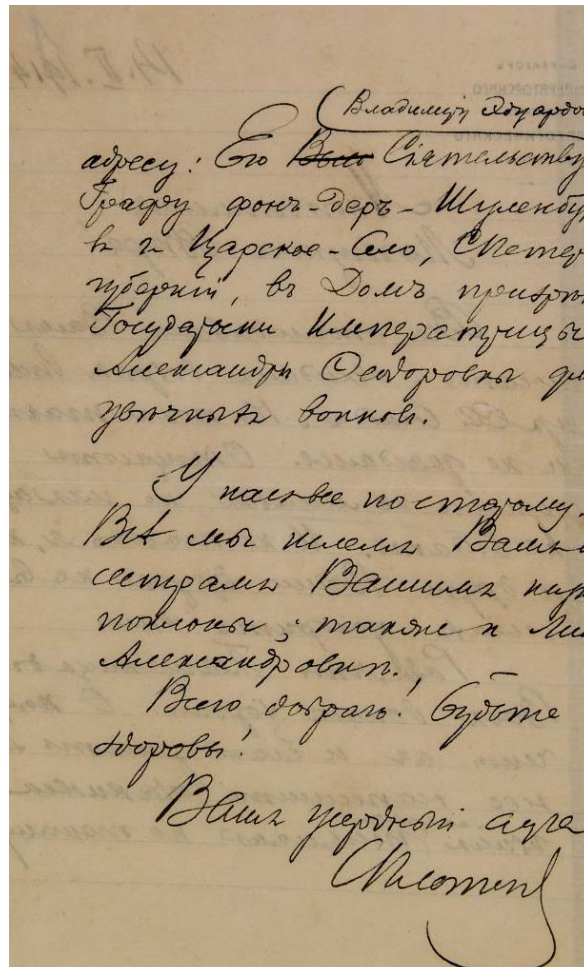 Владиміру Эдуардо
адресу: Его Выс Сіятельству
Графу фонъ-деръ-Шуленбу
в г. Царское-Село, СПетер
губерніи, въ Домъ призрѣ
Государыни Императрицы
Александры Ѳеодоровны дл
увѣчныхъ воиновъ.
У насъ все по старому.
Всѣ мы шлемъ Вамъ
сестрамъ Вашимъ
поклоны; также и
Александровнѣ.
Всего добраго! Будьте
здоровы!
Вашъ усердный слуга